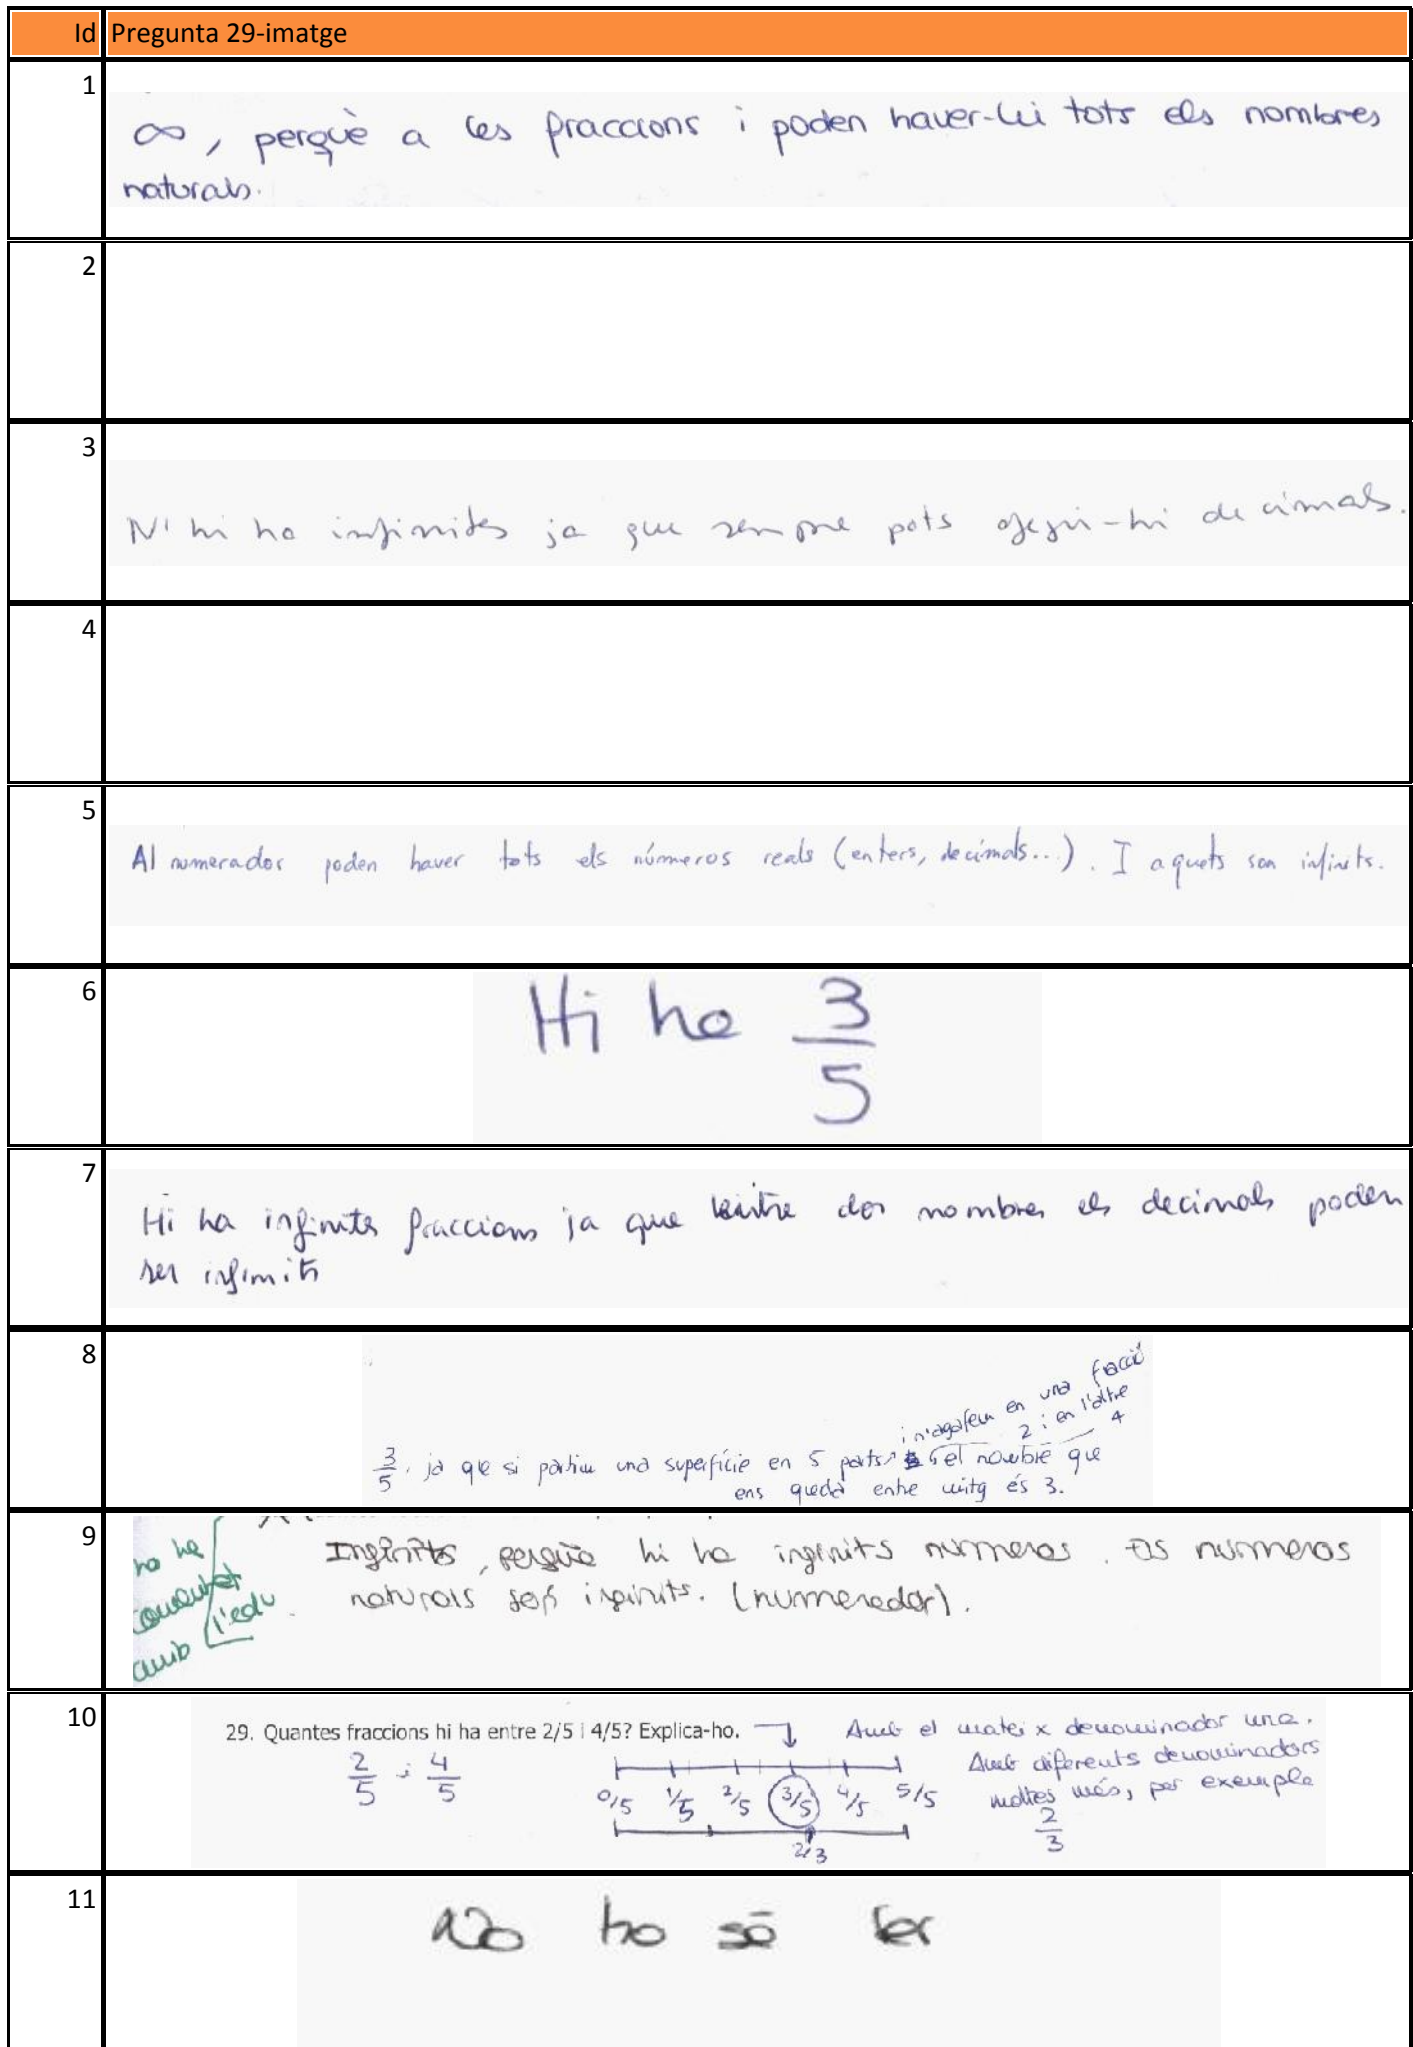 Id Pregunta 29-imatge
1
∞, perquè a les fraccions i poden haver-hi tots els nombres
naturals.
2
3
N'hi ha infinites ja que sempre pots afegir-hi decimals.
4
5
Al numerador poden haver tots els números reals (enters, decimals...). I aquets son infinits.
6
Hi ha 3/5
7
Hi ha infinites fraccions ja que entre dos nombres els decimals poden
ser infinits
8
3/5, ja que si partim una superfície en 5 parts i n'agafem en una fracció 2 i en l'altre 4 el nombre que
ens queda entre mitg és 3.
9
no ha
comentat
amb l'edu
Infinits, perquè hi ha infinits números. Els numeros
naturals són infinits. (numerador).
10
29. Quantes fraccions hi ha entre 2/5 i 4/5? Explica-ho.
Amb el mateix denominador una.
Amb diferents denominadors
moltes més, per exemple
2/3
2/5 i 4/5
0/5 1/5 2/5 3/5 4/5 5/5
2/3
11
No ho sé fer